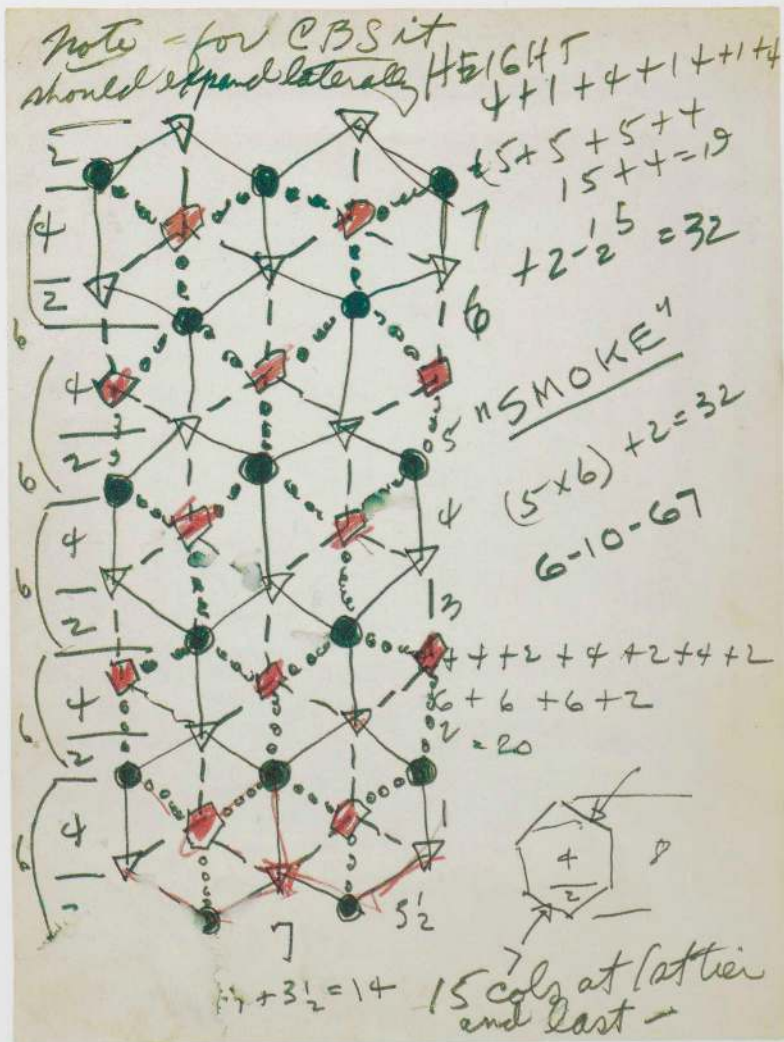 Note - for CBS it
should expand laterally
HEIGHT
4+1+4+1+4+1+4
(5+5+5+4
15+4=19
+2-½ 5 = 32
"SMOKE"
(5×6)+2=32
6-10-67
2
4
2
6
4
2
6
4
2
6
4
2
6
4
6
7
6
5
4
13
4+2+4+2+4+2
6+6+6+2
2
=20
1
5½
7
+3½=14
4
2
8
15 cols at 1st tier
and last -